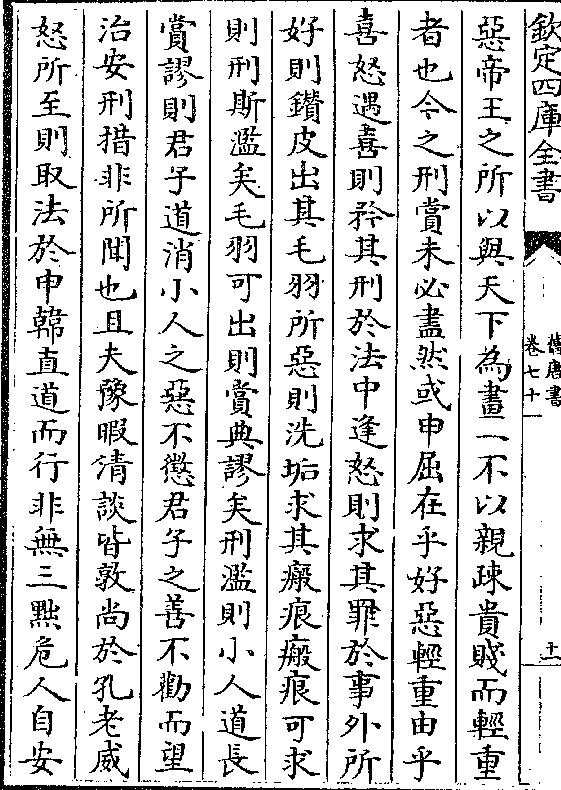 欽定四庫全書
舊唐書
卷七十
十一
惡帝王之所以與天下為畫一不以親疎貴賤而輕重
者也今之刑賞未必盡然或申屈在乎好惡輕重由乎
喜怒遇喜則矜其刑於法中逢怒則求其罪於事外所
好則鑽皮出其毛羽所惡則洗垢求其瘢痕瘢痕可求
則刑斯濫矣毛羽可出則賞典謬矣刑濫則小人道長
賞謬則君子道消小人之惡不懲君子之善不勸而望
治安刑措非所聞也且夫豫暇清談皆敦尚於孔老威
怒所至則取法於申韓直道而行非無三黜危人自安